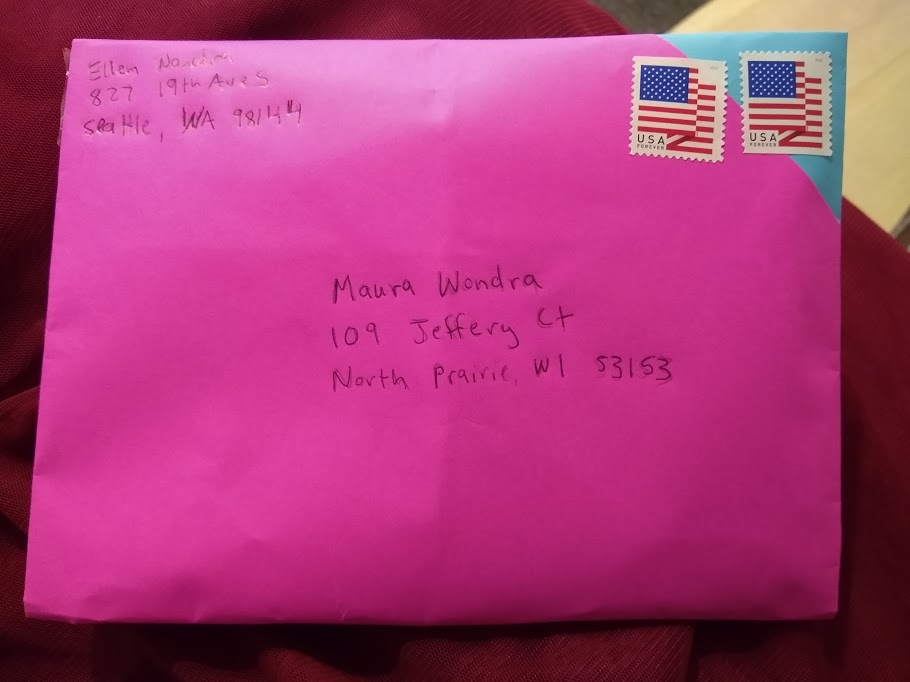 Ellen
827 19th Ave S
Seattle, WA 98144
USA
FOREVER
USA
FOREVER
Maura Wondra
109 Jeffery Ct
North Prairie, WI 53153